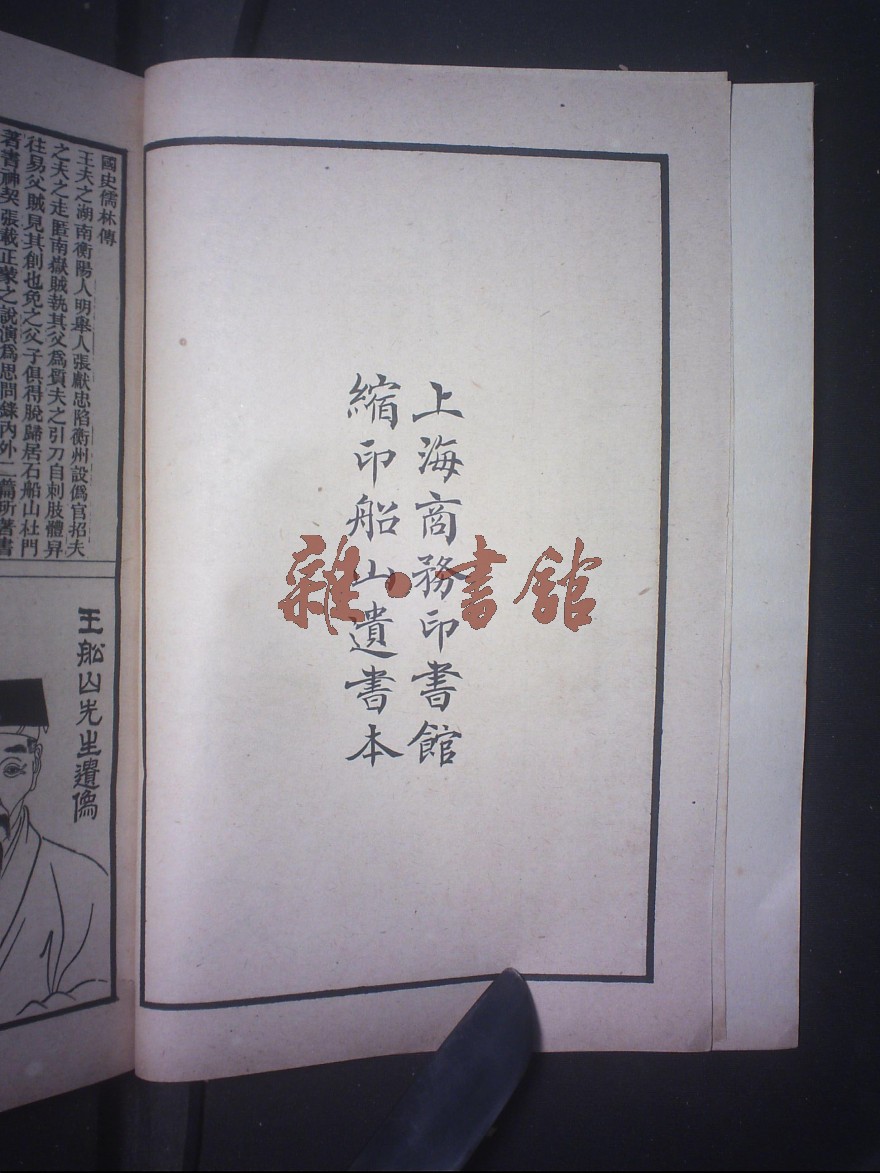 上海商務印書館
縮印船山遺書本
雜·書館
國史儒林傳
王夫之湖南衡陽人明舉人張獻忠陷衡州設僞官招夫
之夫之走匿南嶽賊執其父爲質夫之引刀自刺肢體舁
往易父賊見其創也免之父子俱得脫歸居石船山杜門
著書神契張載正蒙之說演爲思問錄內外二篇所著書
王船山先生遺像